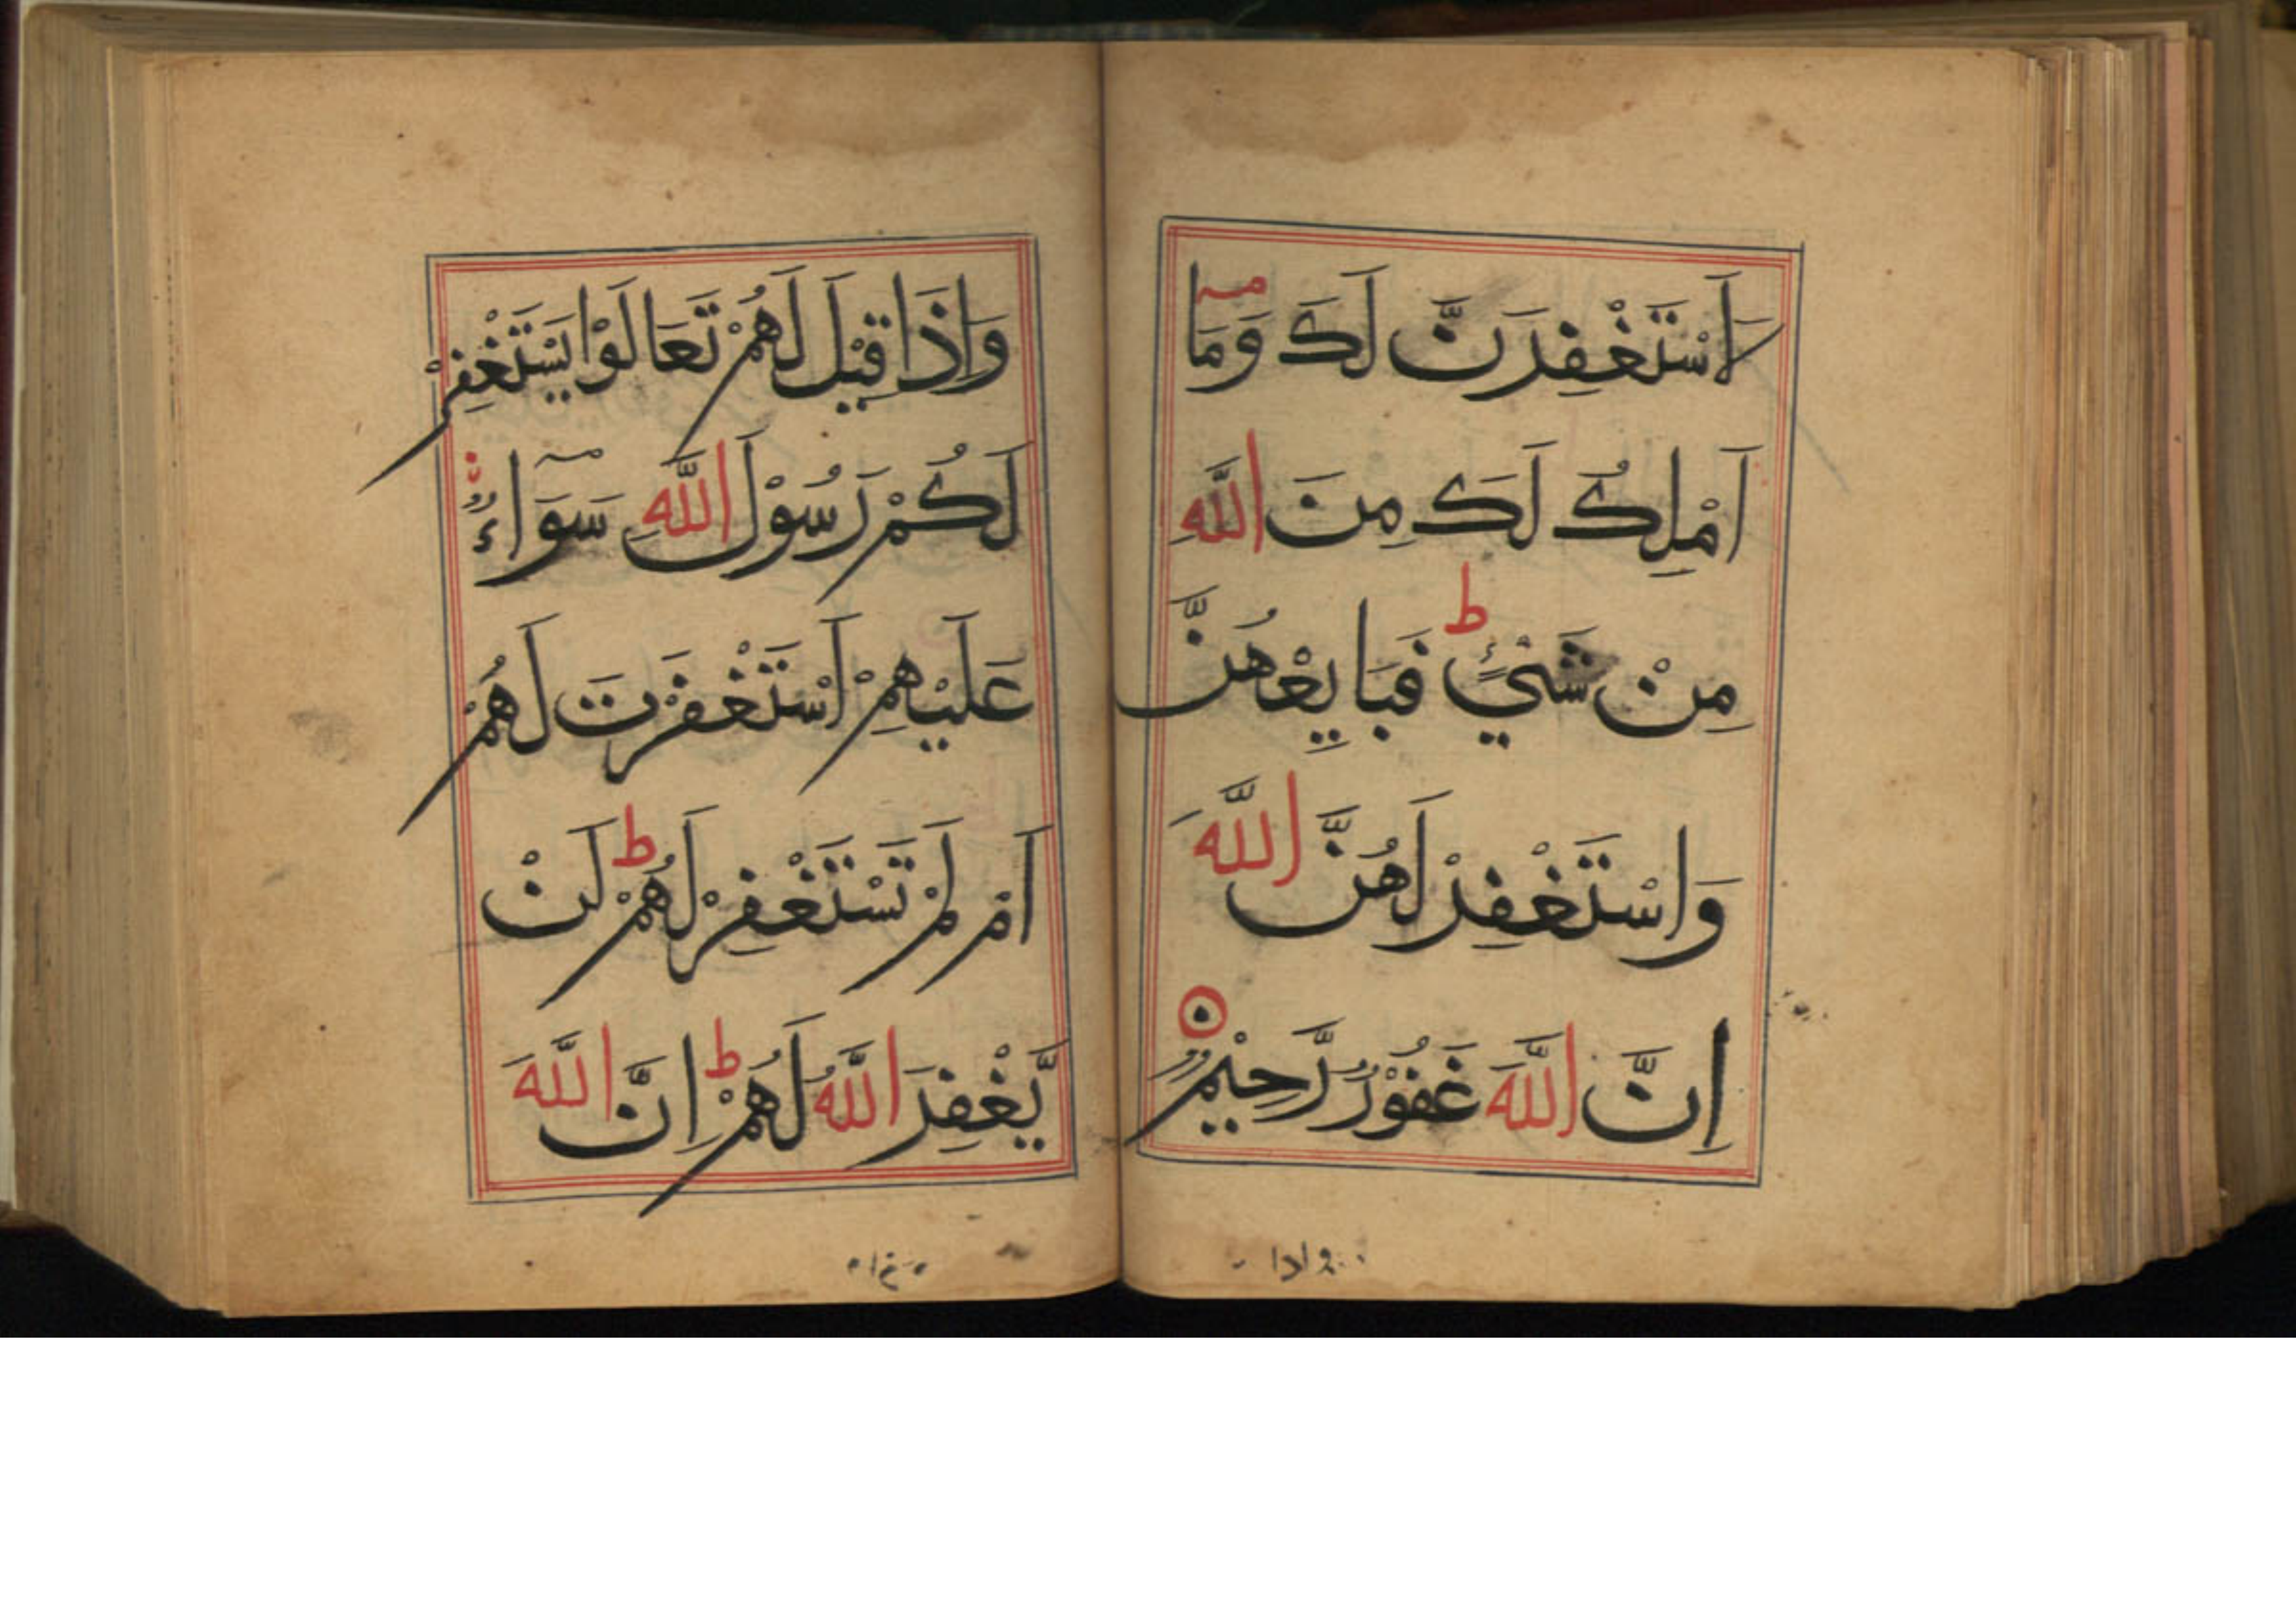 لَاَسْتَغْفِرَنَّ لَكَ وَمَآ
اَمْلِكُ لَكَ مِنَ اللّٰهِ
مِنْ شَیْءٍ ط فَبَايِعْهُنَّ
وَاسْتَغْفِرْ لَهُنَّ اللّٰهَ
اِنَّ اللّٰهَ غَفُوْرٌ رَّحِيْمٌ
وَاِذَا قِيْلَ لَهُمْ تَعَالَوْا يَسْتَغْفِرْ
لَكُمْ رَسُوْلُ اللّٰهِ سَوَآءٌ
عَلَيْهِمْ اَسْتَغْفَرْتَ لَهُمْ
اَمْ لَمْ تَسْتَغْفِرْ لَهُمْ ط لَنْ
يَّغْفِرَ اللّٰهُ لَهُمْ ط اِنَّ اللّٰهَ